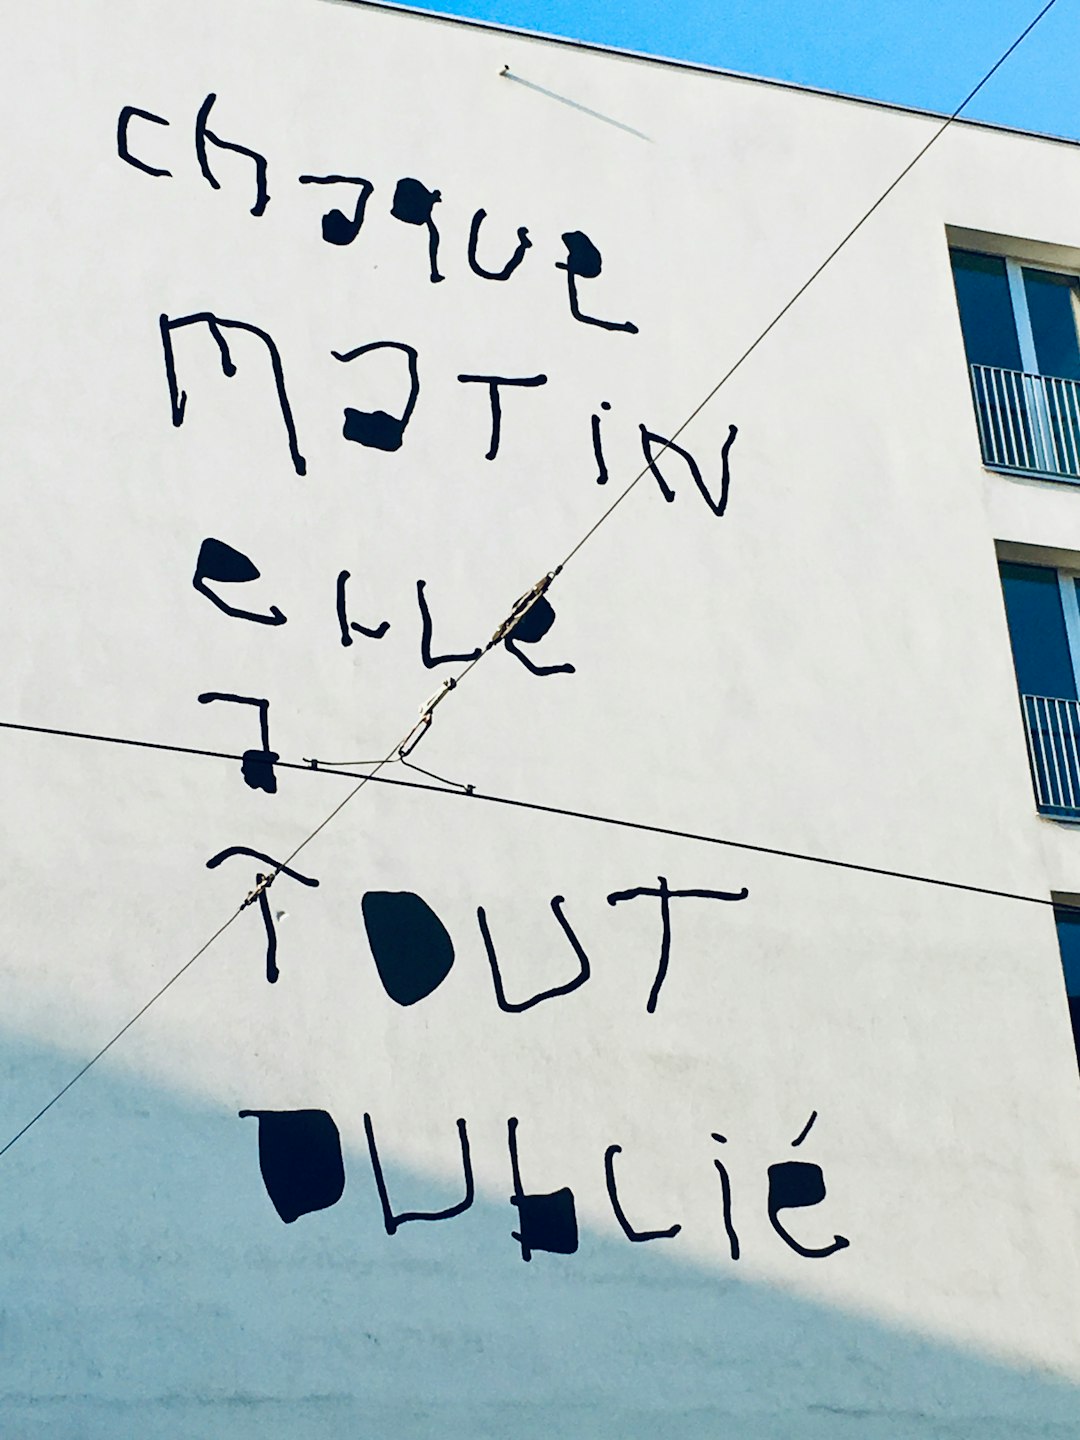 chaque
maTiN
eLLe
a
TOUT
OUbLié